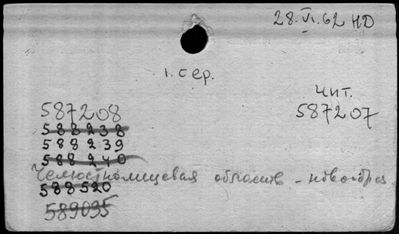 28.VI.62 НО
1. сер.
чит.
587208
587207
588238
588239
588240
Челюстнолицевая область - новообраз.
588520
589035